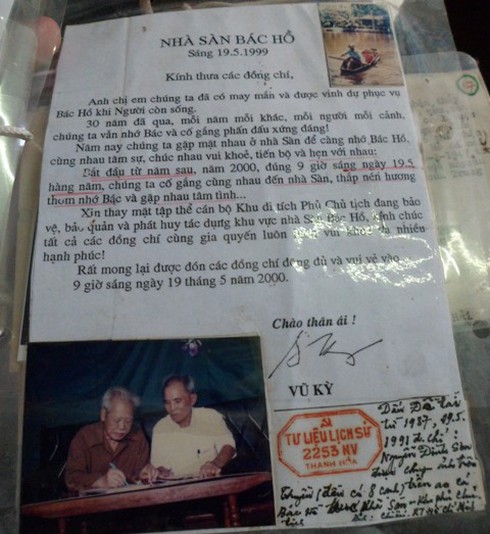 NHÀ SÀN BÁC HỒ
Sáng 19.5.1999
Kính thưa các đồng chí,
Anh chị em chúng ta đã có may mắn và được vinh dự phục vụ
Bác Hồ khi Người còn sống.
30 năm đã qua, mỗi năm mỗi khác, mỗi người mỗi cảnh,
chúng ta vẫn nhớ Bác và cố gắng phấn đấu xứng đáng!
Năm nay chúng ta gặp mặt nhau ở nhà Sàn để càng nhớ Bác Hồ,
cùng nhau tâm sự, chúc nhau vui khoẻ, tiến bộ và hẹn với nhau:
Bắt đầu từ năm sau, năm 2000, đúng 9 giờ sáng ngày 19.5
hàng năm, chúng ta cố gắng cùng nhau đến nhà Sàn, thắp nén hương
thơm nhớ Bác và gặp nhau tâm tình...
Xin thay mặt tập thể cán bộ Khu di tích Phủ Chủ tịch đang bảo
vệ, bảo quản và phát huy tác dụng khu vực nhà Sàn Bác Hồ, kính chúc
tất cả các đồng chí cùng gia quyến luôn vui khoẻ và nhiều
hạnh phúc!
Rất mong lại được đón các đồng chí đông đủ và vui vẻ vào
9 giờ sáng ngày 19 tháng 5 năm 2000.
Chào thân ái !
VŨ KỲ
TƯ LIỆU LỊCH SỬ
2253 NV
THANH HÓA
từ 1987, 19.5.
1991 đ/c
Nguyễn Đình
Thuyền (đến cá 8 cạnh) trên ao cá